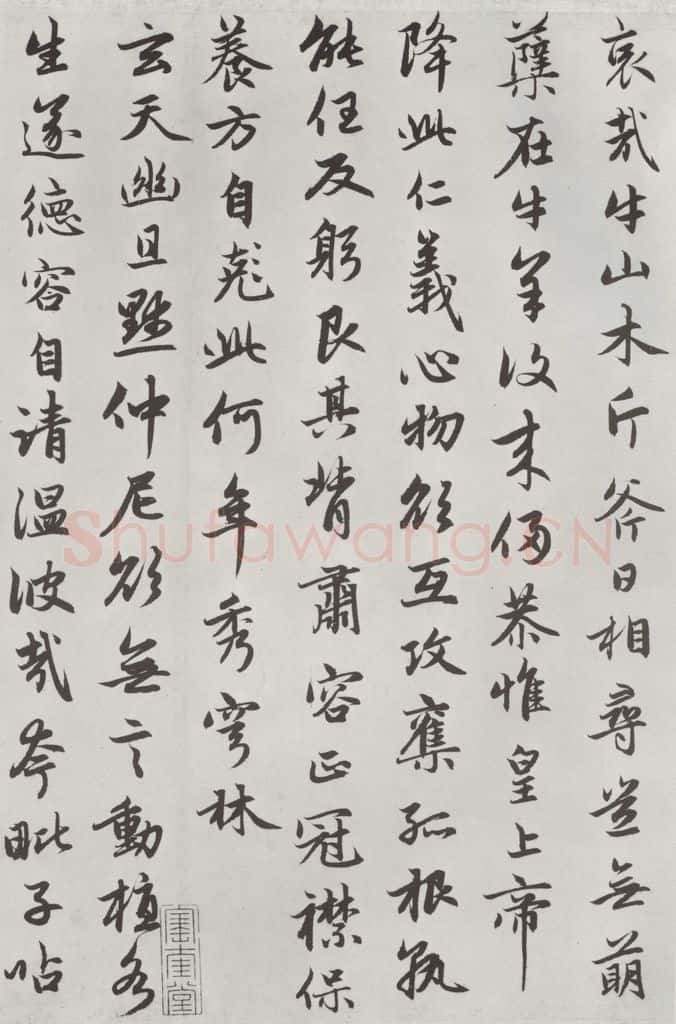 哀哉牛山木斤斧日相尋豈無萌
蘖在牛羊復来侵恭惟皇上帝
降此仁義心物欲互攻奪孤根孰
能任反躬艮其背肅容正冠襟保
養方自此何年秀穹林
玄天幽且默仲尼欲無言動植各
生遂德容自清温彼哉夸毗子呫
Shufawang.CN